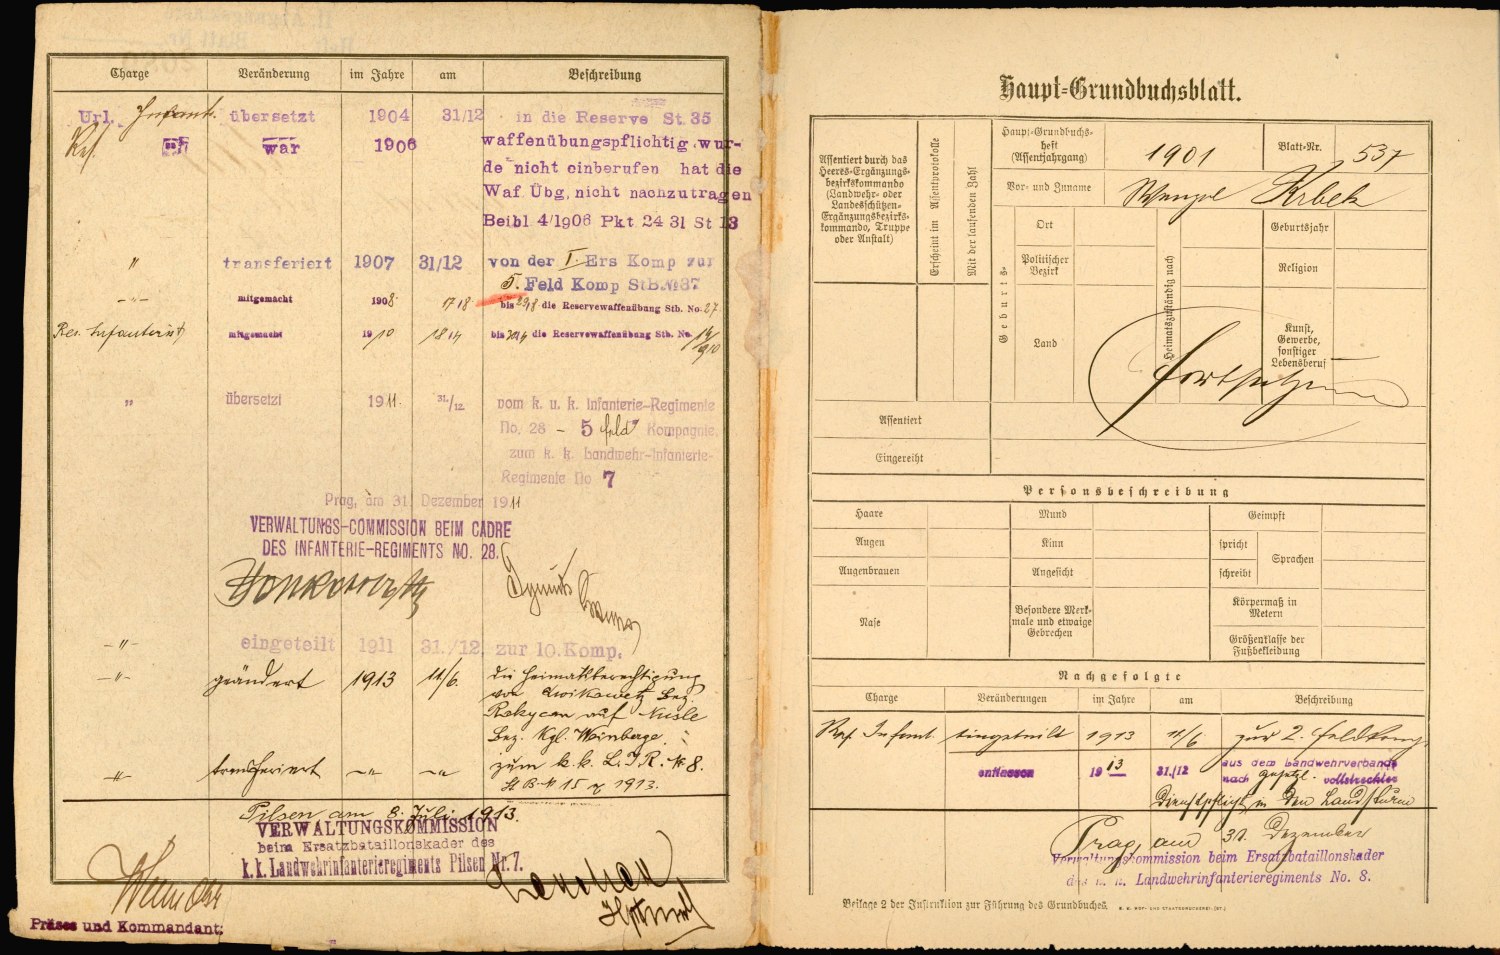 Charge Veränderung im Jahre am Beschreibung
Url. Infant. übersetzt 1904 31/12 in die Reserve St. 35
Res. war 1906 waffenübungspflichtig wur-
de nicht einberufen hat die
Waf. Übg, nicht nachzutragen
Beibl 4/1906 Pkt 24 31 St 13
" transferiert 1907 31/12 von der I. Ers Komp zur
5. Feld Komp StB.No 37
-"- mitgemacht 1908 17/8 bis 29/8 die Reservewaffenübung Stb. No. 27
Res. Infanterist mitgemacht 1910 18/4 bis 30/4 die Reservewaffenübung Stb. No. 14/1910
" übersetzt 1911. 31./12. vom k. u. k. Infanterie-Regimente
No. 28 - 5 feld Kompagnie,
zum k. k. Landwehr-Infanterie-
Regimente No 7
Prag, am 31. Dezember 1911
VERWALTUNGS-COMMISSION BEIM CADRE
DES INFANTERIE-REGIMENTS NO. 28.
-"- eingeteilt 1911 31./12. zur 10. Komp.
-"- geändert 1913 11/6. die Heimatberechtigung
von Bez.
Rokycan auf Nusle
Bez. Kgl. Weinberge.
-"- transferiert -"- -"- zum k. k. L. I. R. No 8.
St B. No 15 1913.
Pilsen am 8. Juli 1913.
VERWALTUNGSKOMMISSION
beim Ersatzbataillonskader des
k. k. Landwehrinfanterieregiments Pilsen Nr. 7.
Hptm
Präses und Kommandant:
Haupt-Grundbuchsblatt.
Assentiert durch das
Heeres-Ergänzungs-
bezirkskommando
(Landwehr- oder
Landesschützen-
Ergänzungsbezirks-
kommando, Truppe
oder Anstalt)
Erscheint im Assentprotokolle
Mit der laufenden Zahl
Haupt-Grundbuchs-
heft
(Assentjahrgang) 1901 Blatt-Nr. 537
Vor- und Zuname Wenzel Krbek
Geburts-
Ort
Politischer
Bezirk
Land
Heimatszuständig nach
Geburtsjahr
Religion
Kunst,
Gewerbe,
sonstiger
Lebensberuf
Fortsetzung
Assentiert
Eingereiht
Personsbeschreibung
Haare Mund Geimpft
Augen Kinn spricht Sprachen
Augenbrauen Angesicht schreibt
Nase Besondere Merk-
male und etwaige
Gebrechen
Körpermaß in
Metern
Größenklasse der
Fußbekleidung
Nachgefolgte
Charge Veränderungen im Jahre am Beschreibung
Res. Infant. eingeteilt 1913 11/6 zur 2. Feldkomp.
entlassen 1913 31./12 aus dem Landwehrverbande
nach gesetzl. vollstreckter
Dienstpflicht in den Landsturm
Prag, am 31. Dezember
Verwaltungskommission beim Ersatzbataillonskader
des k. k. Landwehrinfanterieregiments No. 8.
Beilage 2 der Instruktion zur Führung des Grundbuches. K. K. HOF- UND STAATSDRUCKEREI. (ST.)